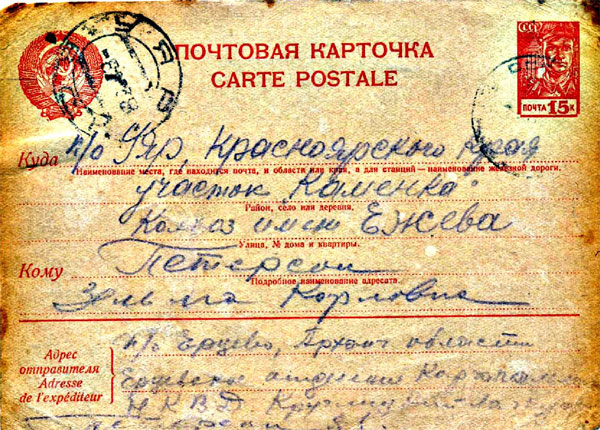 СССР
ПОЧТОВАЯ КАРТОЧКА
CARTE POSTALE
ПОЧТА 15 К
Куда п/о Уяр, Красноярского края
Наименование места, где находится почта, и области или края, а для станций — наименование железной дороги.
участок "Каменка"
Район, село или деревня.
Колхоз имен Ежева
Улица, № дома и квартиры.
Кому Петерсон
Подробное наименование адресата.
Карловна
п/о Ерцево, Арханг области
Адрес
отправителя
Adresse
de l'expéditeur
Ерцевское отделение
НКВД